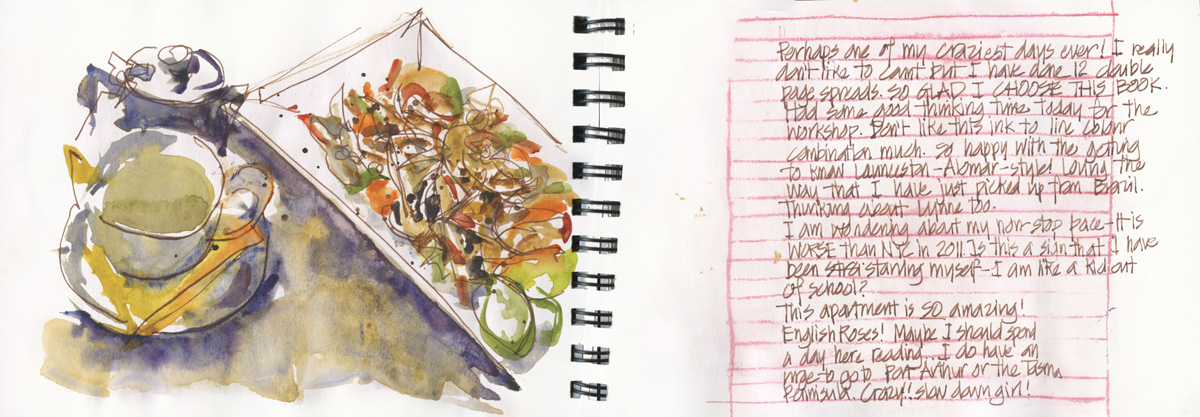 Perhaps one of my craziest days ever! I really
don't like to count But I have done 12 double
page spreads. SO GLAD I CHOOSE THIS BOOK.
Had some good thinking time today for the
workshop. Don't like this ink to line colour
combination much. So happy with the getting
to know Launceston - Alomar - style! Loving the
way that I have just picked up from Brazil.
Thinking about Lynne too.
I am wondering about my non-stop pace - it is
WORSE than NYC in 2011. Is this a sign that I have
been starving myself - I am like a kid out
of school?
This apartment is SO amazing!
English Roses! Maybe I should spend
a day here reading... I do have an
urge to go to Port Arthur or the Tasman
Peninsula. Crazy!! slow down girl!